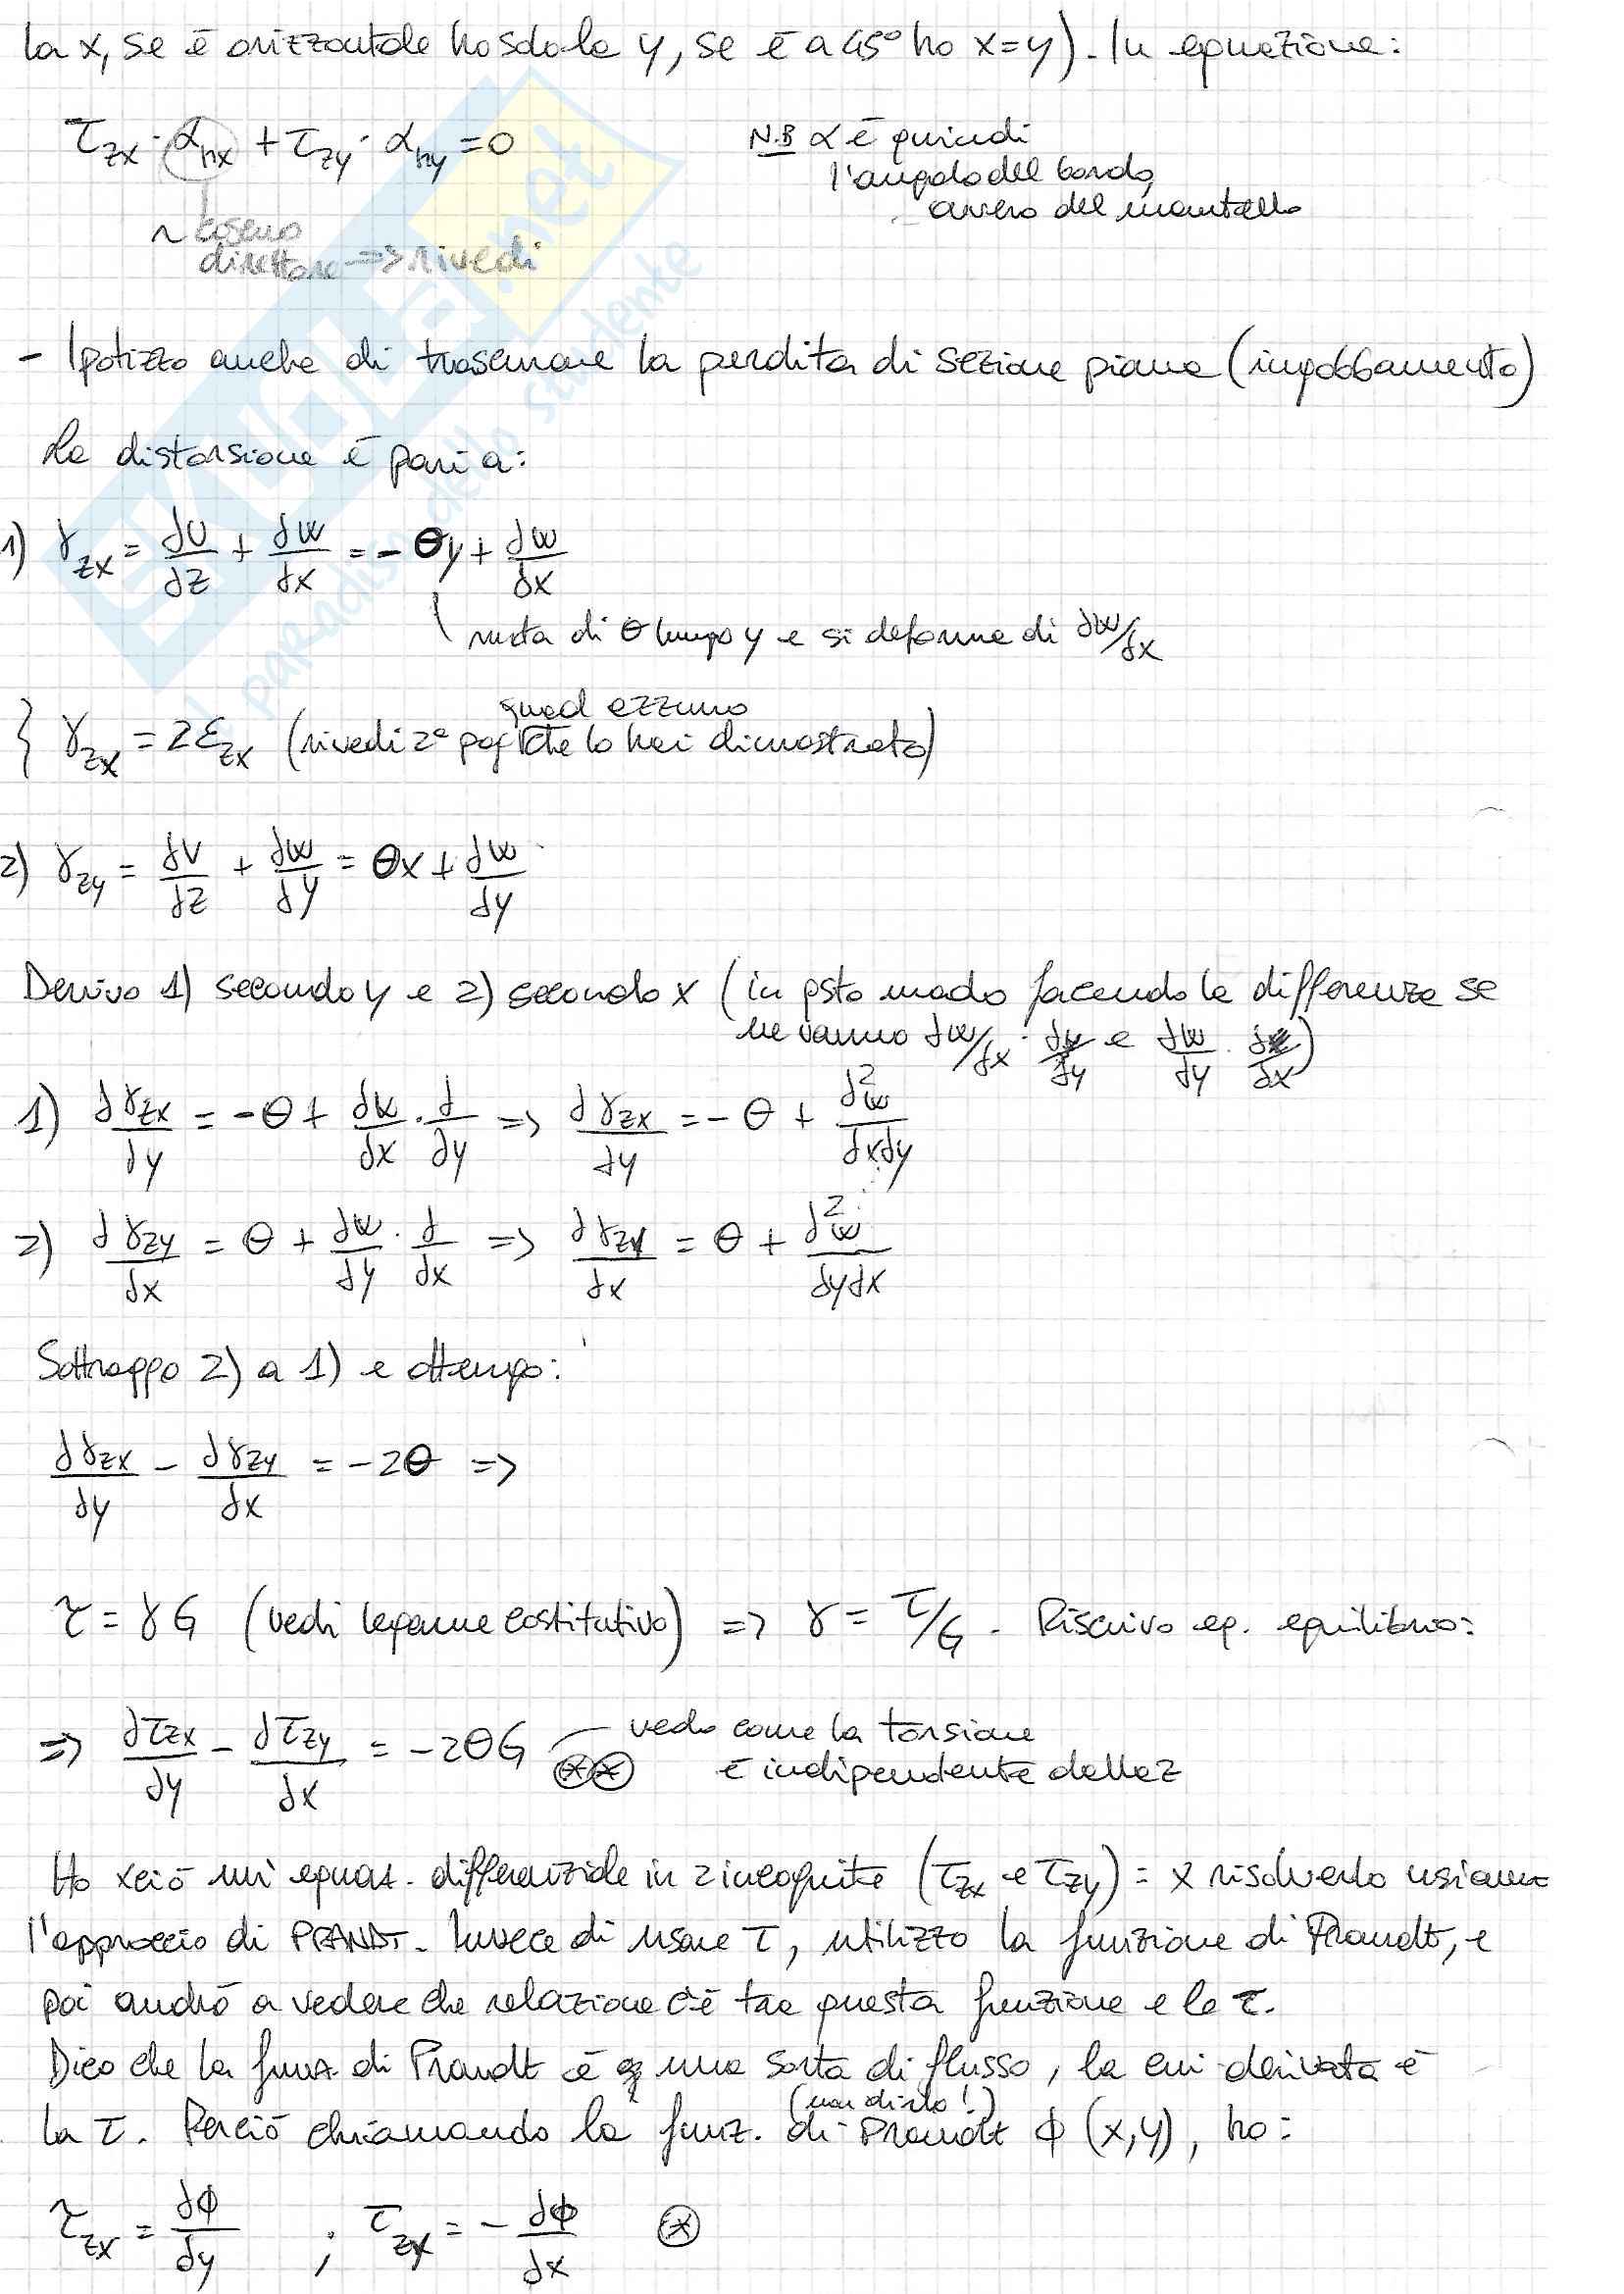 la x, se è orizzontale ho solo la y, se è a 45° ho x=y). In equazione:
τzx · αnx + τzy · αny = 0
N.B α è quindi
l'angolo del bordo,
ovvero del mantello
~ coseno
direttore => rivedi
- Ipotizzo anche di trascurare la perdita di sezione piana (ingobbamento)
La distorsione è pari a:
1) γzx = ∂U/∂z + ∂w/∂x = -θy + ∂w/∂x
ruota di θ lungo y e si deforma di ∂w/∂x
quad ezzuno
{ γzx = 2εzx (rivedi 2° pag che lo hai dimostrato)
2) γzy = ∂V/∂z + ∂w/∂y = θx + ∂w/∂y
Derivo 1) secondo y e 2) secondo x (in qsto modo facendo le differenze se
ne vanno ∂w/∂x · ∂/∂y e ∂w/∂y · ∂/∂x)
1) ∂γzx/∂y = -θ + ∂w/∂x · ∂/∂y => ∂γzx/∂y = -θ + ∂²w/∂x∂y
2) ∂γzy/∂x = θ + ∂w/∂y · ∂/∂x => ∂γzy/∂x = θ + ∂²w/∂y∂x
Sottraggo 2) a 1) e ottengo:
∂γzx/∂y - ∂γzy/∂x = -2θ =>
τ = γG (vedi legame costitutivo) => γ = τ/G. Riscrivo eq. equilibrio:
=> ∂τzx/∂y - ∂τzy/∂x = -2θG ⊛⊛ vedo come la torsione
è indipendente dalla z
Ho xciò un'equaz. differenziale in 2 incognite (τzx e τzy) = x risolverlo usiamo
l'approccio di PRANDT. Invece di usare τ, utilizzo la funzione di Prandt, e
poi andrò a vedere che relazione c'è tra questa funzione e la τ.
Dico che la funz. di Prandt è una sorta di flusso, la cui derivata è
(non dirlo!)
la τ. Perciò chiamando la funz. di Prandt ϕ (x,y), ho:
τzx = ∂ϕ/∂y ; τzy = - ∂ϕ/∂x ⊛
.net
il paradiso dello studente